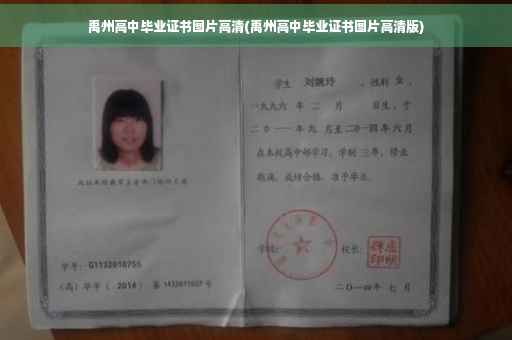 禹州高中毕业证书图片高清(禹州高中毕业证书图片高清版)
学生 刘婉玲 ，性别 女 ，
一九九六 年 二 月 日生，于
二〇一一 年 九 月至 二〇一四 年 六 月
在本校高中部学习，学制 三 年，修业
期满，成绩合格，准予毕业。
学号: G1132010755
(高) 毕字 ( 2014 ) 第 1432011027 号
学校:
校长:
二〇一四年 七 月